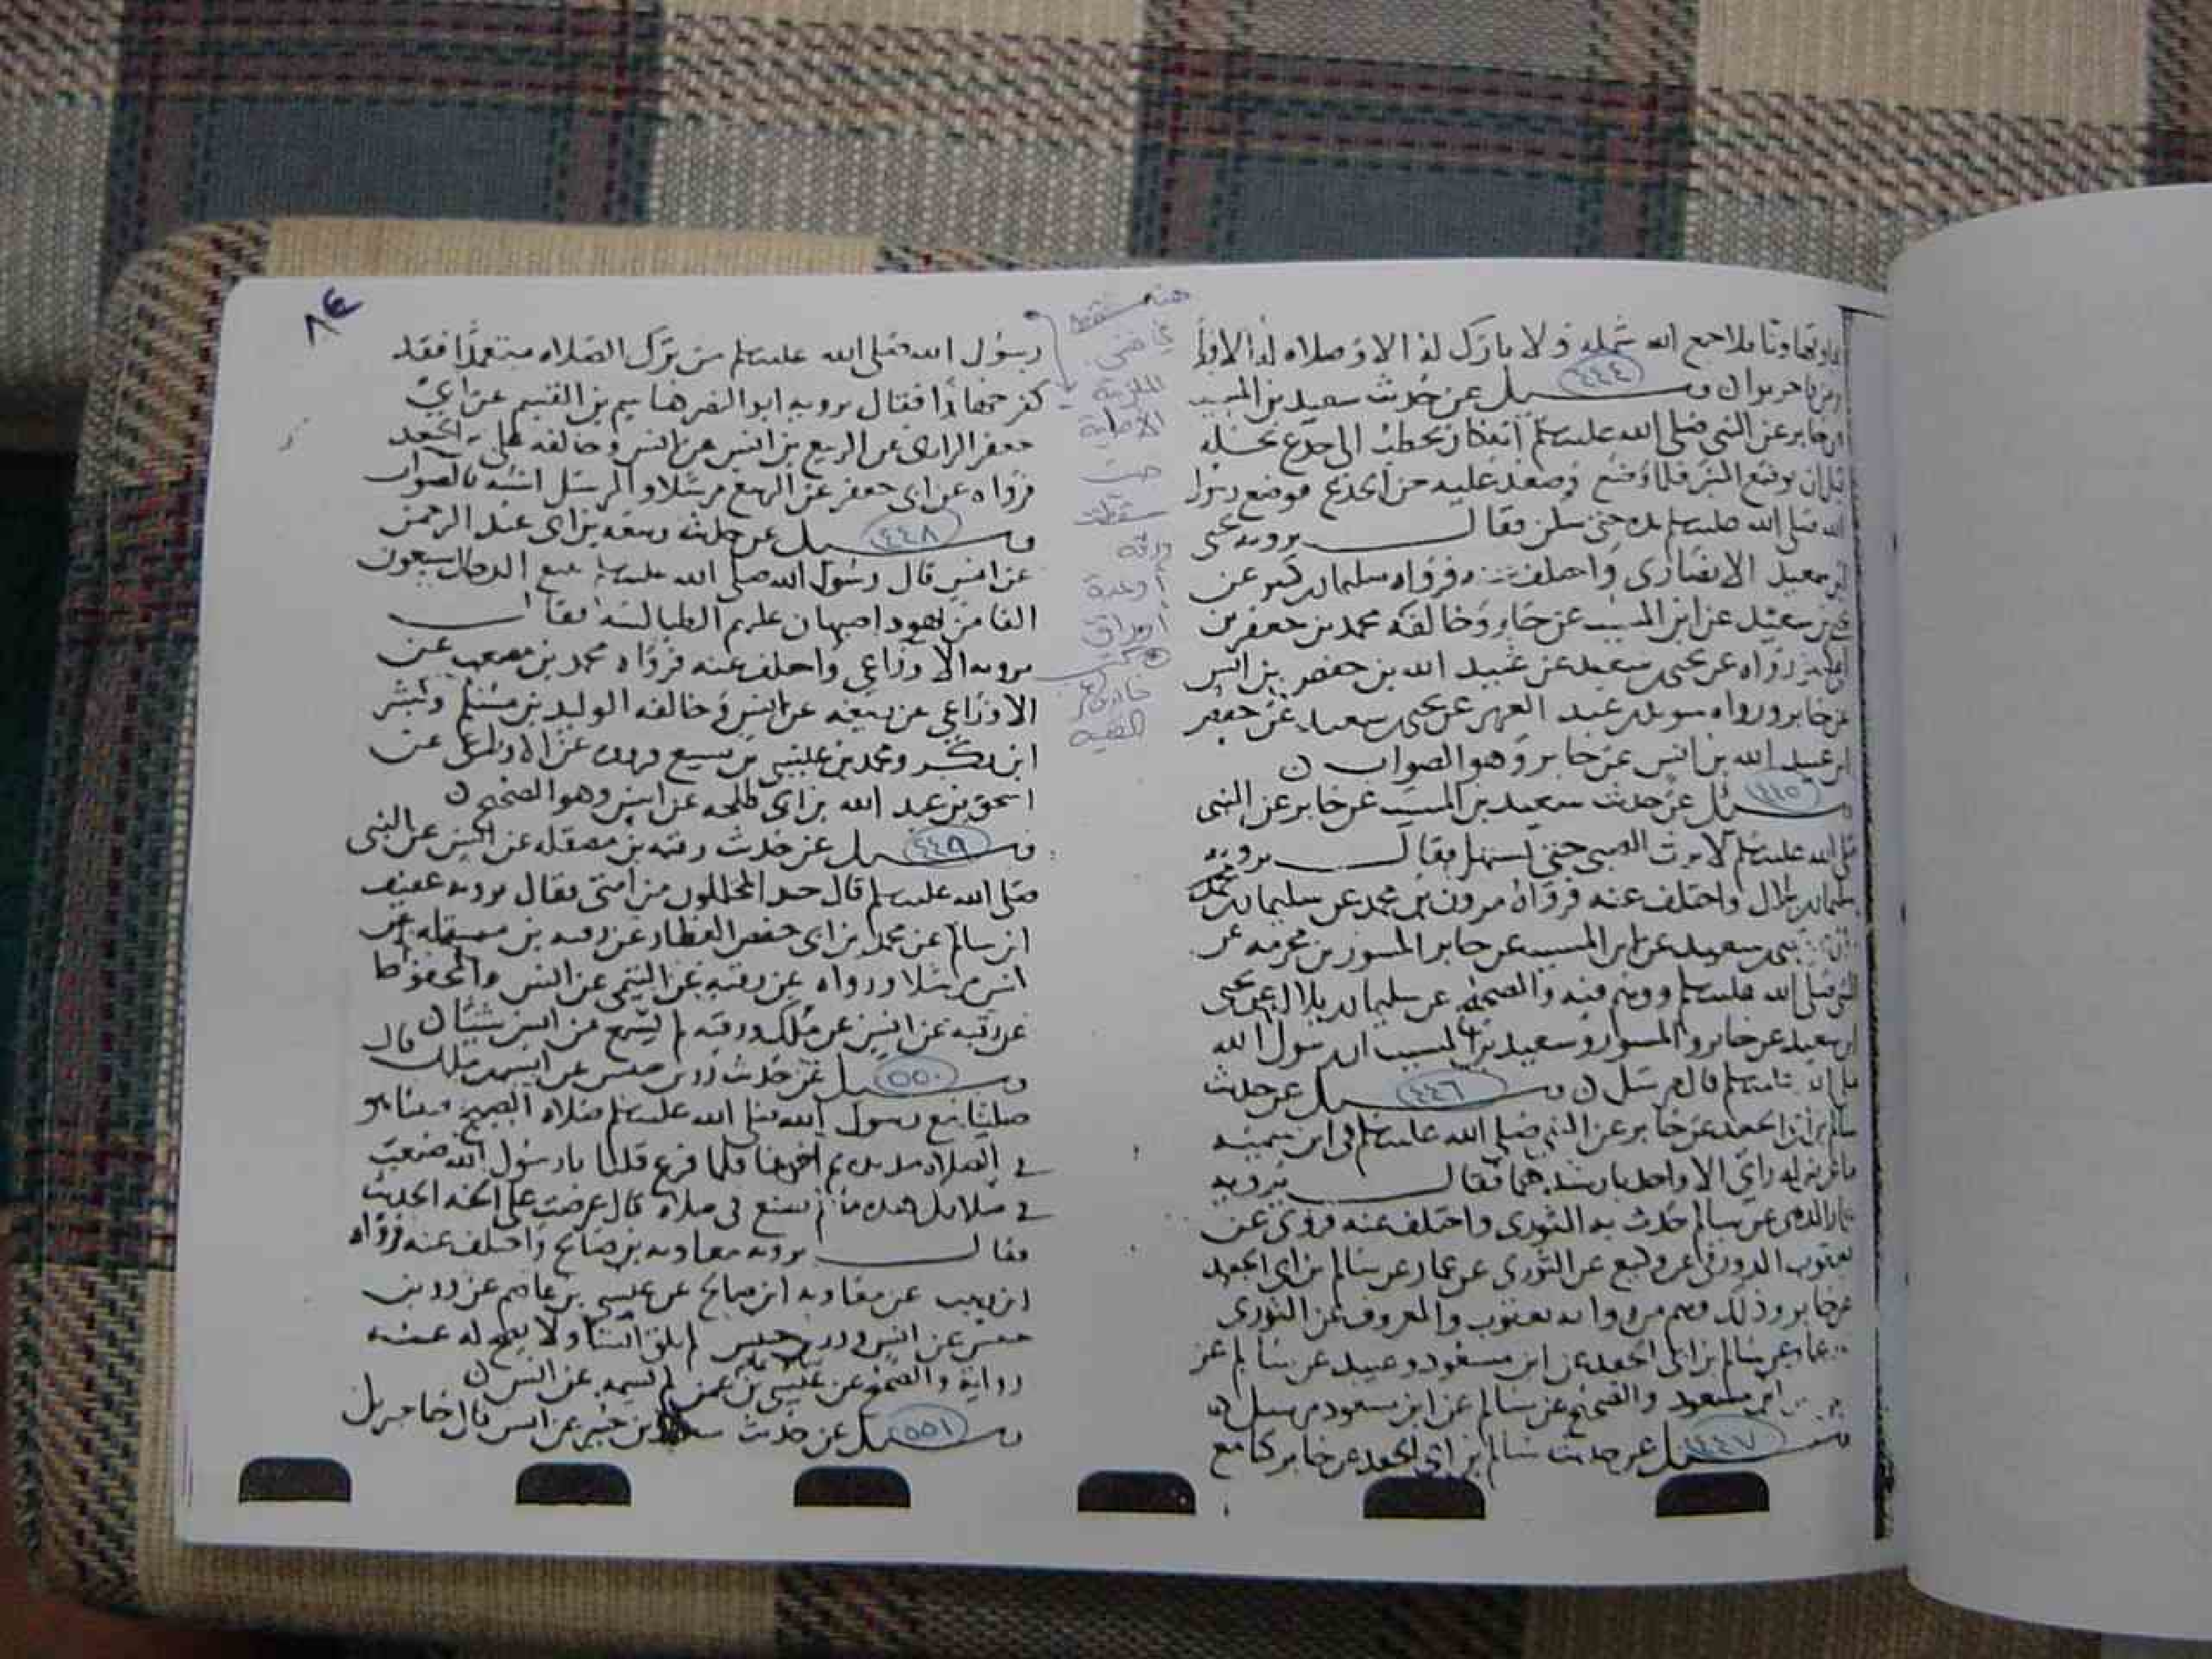 تهاونا فلا جمع الله شمله ولا بارك له الا ولا صلاه له الا ولا
وسيل عن حديث سعيد بن المسيب
٤٤٤
عن جابر عن النبي صلى الله عليه وسلم انه كان يخطب الى جذع نخله
قبل ان يوضع المنبر فلما وضع وصعد عليه حن الجذع فوضع رسول
الله صلى الله عليه وسلم يده حتى سكن فقال يرويه يحيى
بن سعيد الانصاري واختلف عنه فرواه سليمان بن كثير عن
يحيى بن سعيد عن ابن المسيب عن جابر وخالفه محمد بن جعفر بن
ابي كثير رواه عن يحيى بن سعيد عن عبيد الله بن حفص بن انس
عن جابر ورواه سويد بن عبد العزيز عن يحيى بن سعيد عن حفص
ابن عبيد الله بن انس عن جابر وهو الصواب ن
٤٤٥
وسيل عن حديث سعيد بن المسيب عن جابر عن النبي
صلى الله عليه وسلم لا يرث الصبي حتى يستهل فقال يرويه
سليمان بن بلال واختلف عنه فرواه مروان بن محمد عن سليمان بن
يحيى بن سعيد عن ابن المسيب عن جابر المسور بن مخرمه عن
النبي صلى الله عليه وسلم ووهم فيه والصحيح عن سليمان بن بلال عن يحيى
ابن سعيد عن جابر والمسور وسعيد بن المسيب ان رسول الله
صلى الله عليه وسلم قال مرسل ن وسيل عن حديث
٤٤٦
سالم بن ابي الجعد عن جابر عن النبي صلى الله عليه وسلم في ابن سميه
الا واحد بارشدهما فقال يرويه
عمار الدهني عن سالم حدث به الثوري واختلف عنه فروي عن
يعقوب الدورقي عن وكيع عن الثوري عن عمار عن سالم بن ابي الجعد
عن جابر وذلك وهم من رواية يعقوب والمعروف عن الثوري
عن عمار عن سالم بن ابي الجعد عن ابن مسعود وعبيد عن سالم عن
ابن مسعود والصحيح عن سالم عن ابن مسعود مرسل ن
٤٤٧
وسيل عن حديث سالم بن ابي الجعد عن جابر كنا مع
هنا سقط
في
الأصلية
حيث
سقطت
ورقة
أو عدة
أوراق
كتب
الفقيه
٨٤
رسول الله صلى الله عليه وسلم من ترك الصلاه متعمدا فقد
كفر جهارا فقال يرويه ابو النضر هاشم بن القسم عن ابي
جعفر الرازي عن الربيع بن انس عن انس وخالفه علي بن الجعد
فرواه عن ابي جعفر عن الربيع مرسلا والمرسل اشبه بالصواب
٤٤٨
وسيل عن حديث ربيعه بن ابي عبد الرحمن
عن انس قال رسول الله صلى الله عليه وسلم يتبع الدجال سبعون
الفا من يهود اصبهان عليهم الطيالسه فقال
يرويه الاوزاعي واختلف عنه فرواه محمد بن مصعب عن
الاوزاعي عن ربيعه عن انس وخالفه الوليد بن مسلم وبشر
ابن بكر ومحمد بن عيسى بن سميع فرووه عن الاوزاعي عن
اسحق بن عبد الله بن ابي طلحه عن انس وهو الصحيح ن
٤٤٩
وسيل عن حديث رقبه بن مصقله عن انس عن النبي
صلى الله عليه وسلم قال حبذا المتخللون من امتي فقال يرويه عفيف
ابن سالم عن محمد بن ابي حفص العطار عن رقبه بن مصقله عن
انس مرسلا ورواه عن رقبه عن التيمي عن انس والمحفوظ
عن رقبه عن انس عن ملك ورقبه لم يسمع من انس شيئا ن
٥٥٠
وسيل عن حديث زر بن حبيش عن انس بن ملك قال
صلينا مع رسول الله صلى الله عليه وسلم صلاه الصبح فبينا هو
في الصلاه مد يده ثم اخرها فلما فرغ قلنا يا رسول الله صنعت
في صلاتك هذه ما لم تصنع في صلاه قال عرضت علي الجنه الحديث
فقال يرويه معاويه بن صالح واختلف عنه فرواه
ابن وهب عن معاويه ابن صالح عن عيسى بن عاصم عن زر بن
حبيش عن انس وزر بن حبيش لم يلق انسا ولا يصح له عنه
رواية والصحيح عن عيسى بن عن لم يسمه عن انس ن
٥٥١
وسيل عن حديث سعيد بن جبير عن انس قال جا جبريل